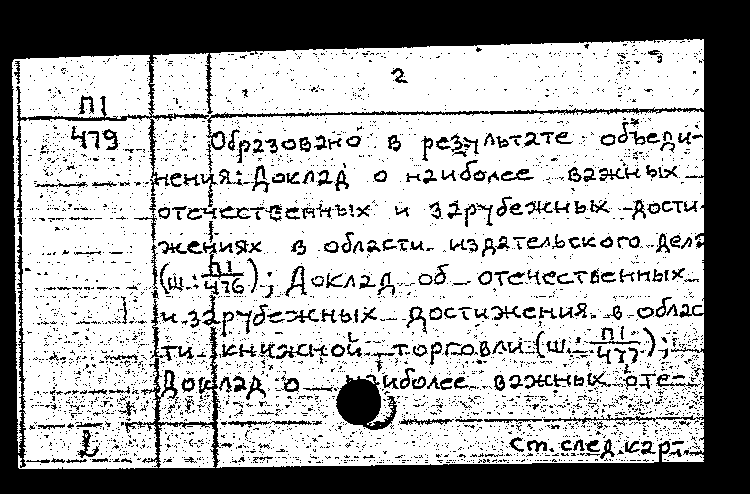 2
П1
479
Образовано в результате объеди-
нения: Доклад о наиболее важных
отечественных и зарубежных дости-
жениях в области издательского дела
(ш.: П1/476); Доклад об отечественных
и зарубежных достижения в облас
ти книжной торговли (ш.: П1/477);
Доклад о наиболее важных оте-
См. след. карт.